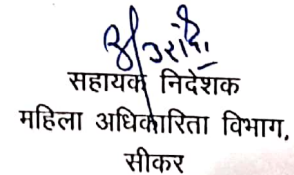 सहायक निदेशक
महिला अधिकारिता विभाग,
सीकर